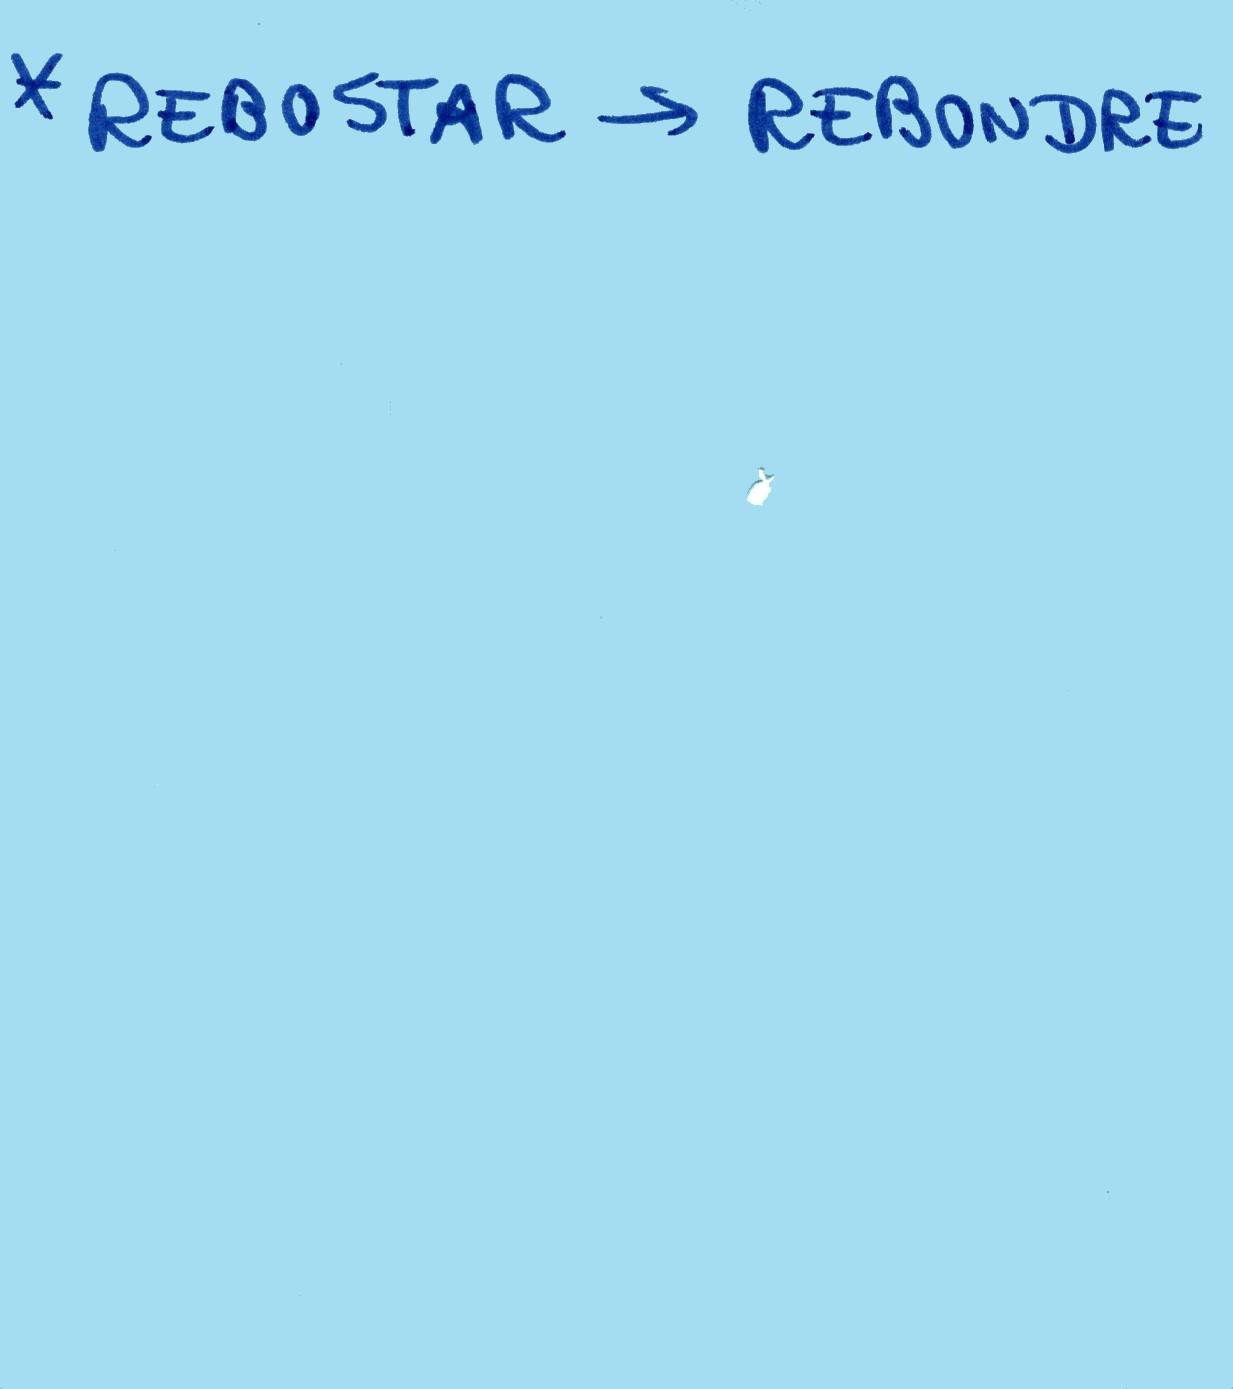 * REBOSTAR → REBONDRE